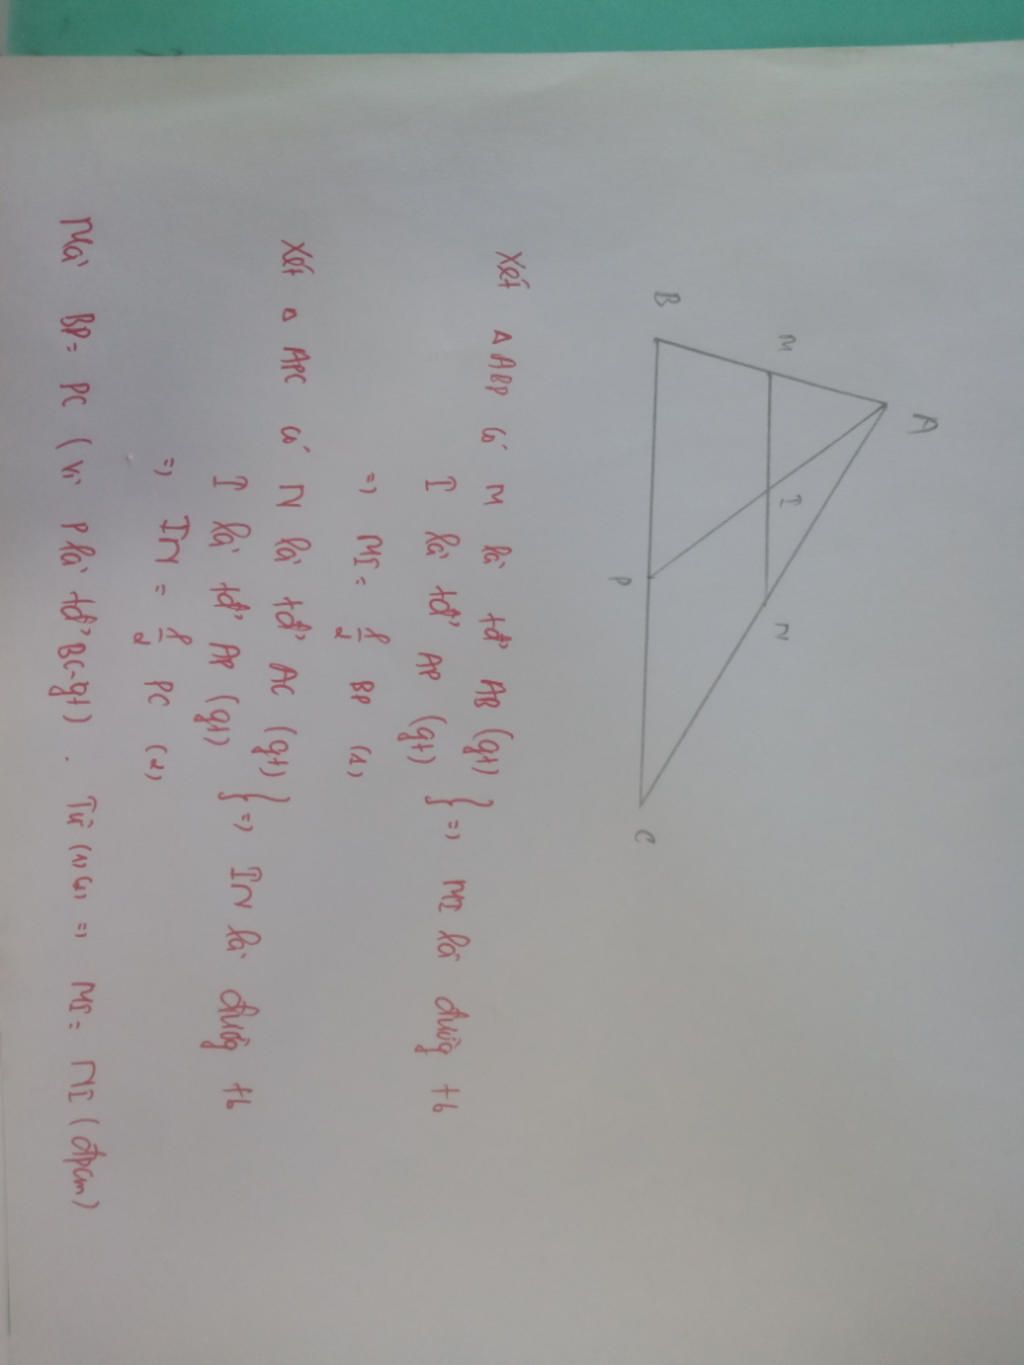 A
M
I
N
B
P
C
Xét △ ABP có M là tđ' AB (gt)
I là tđ' AP (gt) } => MI là đường tb
=> MI = 1/2 BP (1)
Xét △ APC có N là tđ' AC (gt)
I là tđ' AP (gt) } => IN là đường tb
=> IN = 1/2 PC (2)
Mà BP = PC ( vì P là tđ' BC-gt) . Từ (1)(2) => MI = NI (đpcm)